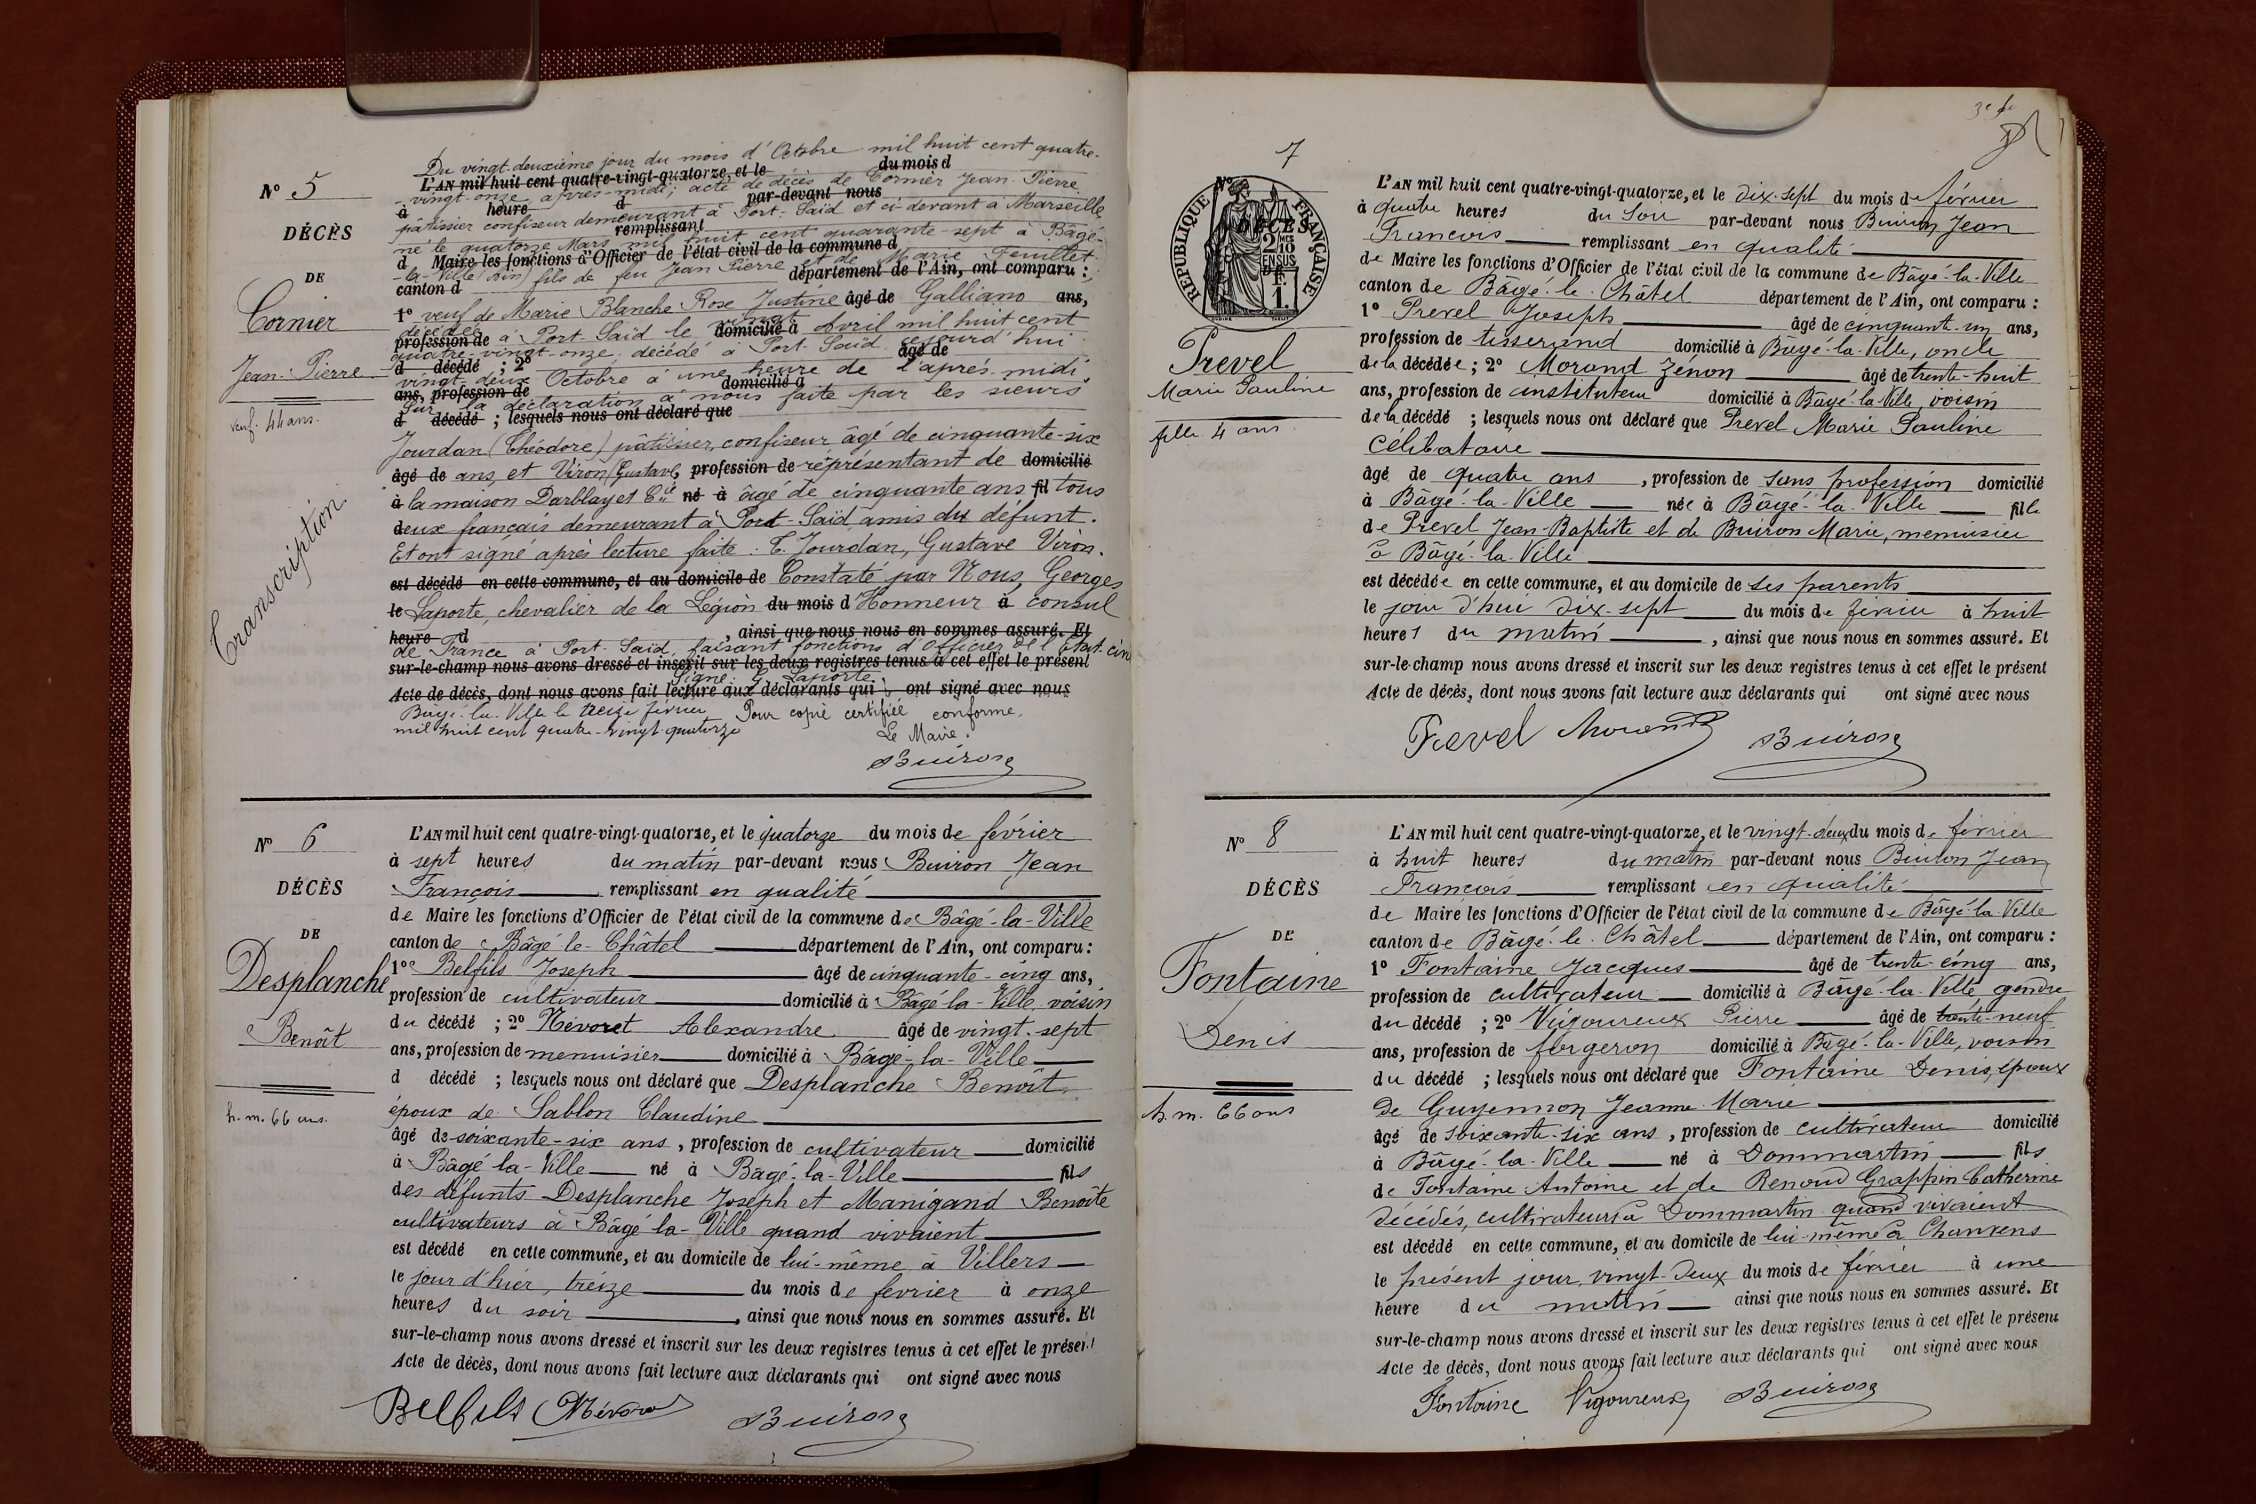 Nº 5
DÉCÈS
DE
Cornier
Jean-Pierre
veuf. 44 ans.
Transcription
Du vingt-deuxième jour du mois d'Octobre mil huit cent quatre-
L'AN mil huit cent quatre-vingt-quatorze, et le du mois d
vingt-onze après-midi; acte de décès de Cornier Jean-Pierre
à heure d par-devant nous
pâtissier confiseur demeurant à Port-Saïd et ci-devant à Marseille
remplissant
né le quatorze Mars mil huit cent quarante-sept à Bâgé-
d Maire les fonctions d'Officier de l'état civil de la commune d
-la-Ville (Ain) fils de feu Jean Pierre et de Marie Feuillet
canton d département de l'Ain, ont comparu :
1º veuf de Marie Blanche Rose Justine âgé de Galliano ans,
décédée
profession de à Port-Saïd le vingt domicilié à Avril mil huit cent
quatre-vingt-onze; décédé à Port-Saïd ce jourd'hui
d décédé ; 2º âgé de
vingt-deux Octobre à une heure de l'après-midi.
ans, profession de domicilié à
Sur la déclaration à nous faite par les sieurs
d décédé ; lesquels nous ont déclaré que
Jourdan (Théodore) pâtissier, confiseur âgé de cinquante-six
âgé de ans, et Viron (Gustave, profession de réprésentant de domicilié
à la maison Darblay et Cie né à âgé de cinquante ans fil tous
deux français demeurant à Port-Saïd, amis du défunt.
Et ont signé après lecture faite : T. Jourdan, Gustave Viron.
est décédé en cette commune, et au domicile de Constaté par Nous, Georges
le Laporte, chevalier de la Légion du mois d'Honneur à consul
heure d , ainsi que nous nous en sommes assuré. Et
de France à Port-Saïd, faisant fonctions d'Officier de l'État-civil
sur-le-champ nous avons dressé et inscrit sur les deux registres tenus à cet effet le présent
Signé: G. Laporte.
Acte de décès, dont nous avons fait lecture aux déclarants qui ont signé avec nous
Bâgé-la-Ville le treize février Pour copie certifiée conforme.
mil huit cent quatre-vingt-quatorze
Le Maire.
Buiron
Nº 6
DÉCÈS
DE
Desplanche
Benoît
h. m. 66 ans.
L'AN mil huit cent quatre-vingt-quatorze, et le quatorze du mois de février
à sept heures du matin par-devant nous Buiron Jean
François remplissant en qualité
de Maire les fonctions d'Officier de l'état civil de la commune de Bâgé-la-Ville
canton de Bâgé-le-Châtel département de l'Ain, ont comparu :
1º Belfils Joseph âgé de cinquante-cinq ans,
profession de cultivateur domicilié à Bâgé-la-Ville, voisin
du décédé ; 2º Névoret Alexandre âgé de vingt-sept
ans, profession de menuisier domicilié à Bâgé-la-Ville
d décédé ; lesquels nous ont déclaré que Desplanche Benoît
époux de Sablon Claudine
âgé de soixante-six ans, profession de cultivateur domicilié
à Bâgé-la-Ville né à Bâgé-la-Ville fils
des défunts Desplanche Joseph et Manigand Benoîte
cultivateurs à Bâgé-la-Ville quand vivaient
est décédé en cette commune, et au domicile de lui-même à Villers
le jour d'hier, treize du mois de fevrier à onze
heures du soir , ainsi que nous nous en sommes assuré. Et
sur-le-champ nous avons dressé et inscrit sur les deux registres tenus à cet effet le présent
Acte de décès, dont nous avons fait lecture aux déclarants qui ont signé avec nous
Belfils Buiron
7
Nº
RÉPUBLIQUE FRANÇAISE
DÉCÈS
2 MES
10
EN SUS
DE
1 F.
Prevel
Marie Pauline
fille 4 ans
L'AN mil huit cent quatre-vingt-quatorze, et le dix-sept du mois de février
à quatre heures du soir par-devant nous Buiron Jean
Francois remplissant en qualité
de Maire les fonctions d'Officier de l'état civil de la commune de Bâgé-la-Ville
canton de Bâgé-le-Châtel département de l'Ain, ont comparu :
1º Prevel Joseph âgé de cinquante-un ans,
profession de tisserand domicilié à Bâgé-la-Ville, oncle
de la décédée ; 2º Morand Zénon âgé de trente-huit
ans, profession de instituteur domicilié à Bâgé-la-Ville, voisin
de la décédé ; lesquels nous ont déclaré que Prevel Marie Pauline
célibataire
âgé de quatre ans , profession de sans profession domicilié
à Bâgé-la-Ville née à Bâgé-la-Ville fille
de Prevel Jean-Baptiste et de Buiron Marie, menuisier
à Bâgé-la-Ville
est décédée en cette commune, et au domicile de ses parents
le jour d'hui dix-sept du mois de février à huit
heures du matin , ainsi que nous nous en sommes assuré. Et
sur-le-champ nous avons dressé et inscrit sur les deux registres tenus à cet effet le présent
Acte de décès, dont nous avons fait lecture aux déclarants qui ont signé avec nous
Prevel Morand Buiron
Nº 8
DÉCÈS
DE
Fontaine
Denis
h. m. 66 ans
L'AN mil huit cent quatre-vingt-quatorze, et le vingt-deux du mois de février
à huit heures du matin par-devant nous Buiron Jean
Francois remplissant en qualité
de Maire les fonctions d'Officier de l'état civil de la commune de Bâgé-la-Ville
canton de Bâgé-le-Châtel département de l'Ain, ont comparu :
1º Fontaine Jacques âgé de trente-cinq ans,
profession de cultivateur domicilié à Bâgé-la-Ville, gendre
du décédé ; 2º Vigoureux Pierre âgé de trente-neuf
ans, profession de forgeron domicilié à Bâgé-la-Ville, voisin
du décédé ; lesquels nous ont déclaré que Fontaine Denis, époux
de Guyennon Jeanne-Marie
âgé de soixante-six ans, profession de cultivateur domicilié
à Bâgé-la-Ville né à Dommartin fils
de Fontaine Antoine et de Renoud Grappin Catherine
décédés, cultivateurs à Dommartin quand vivaient
est décédé en cette commune, et au domicile de lui-même à
le présent jour, vingt-deux du mois de février à une
heure du matin ainsi que nous nous en sommes assuré. Et
sur-le-champ nous avons dressé et inscrit sur les deux registres tenus à cet effet le présent
Acte de décès, dont nous avons fait lecture aux déclarants qui ont signé avec nous
Fontaine Vigoureux Buiron